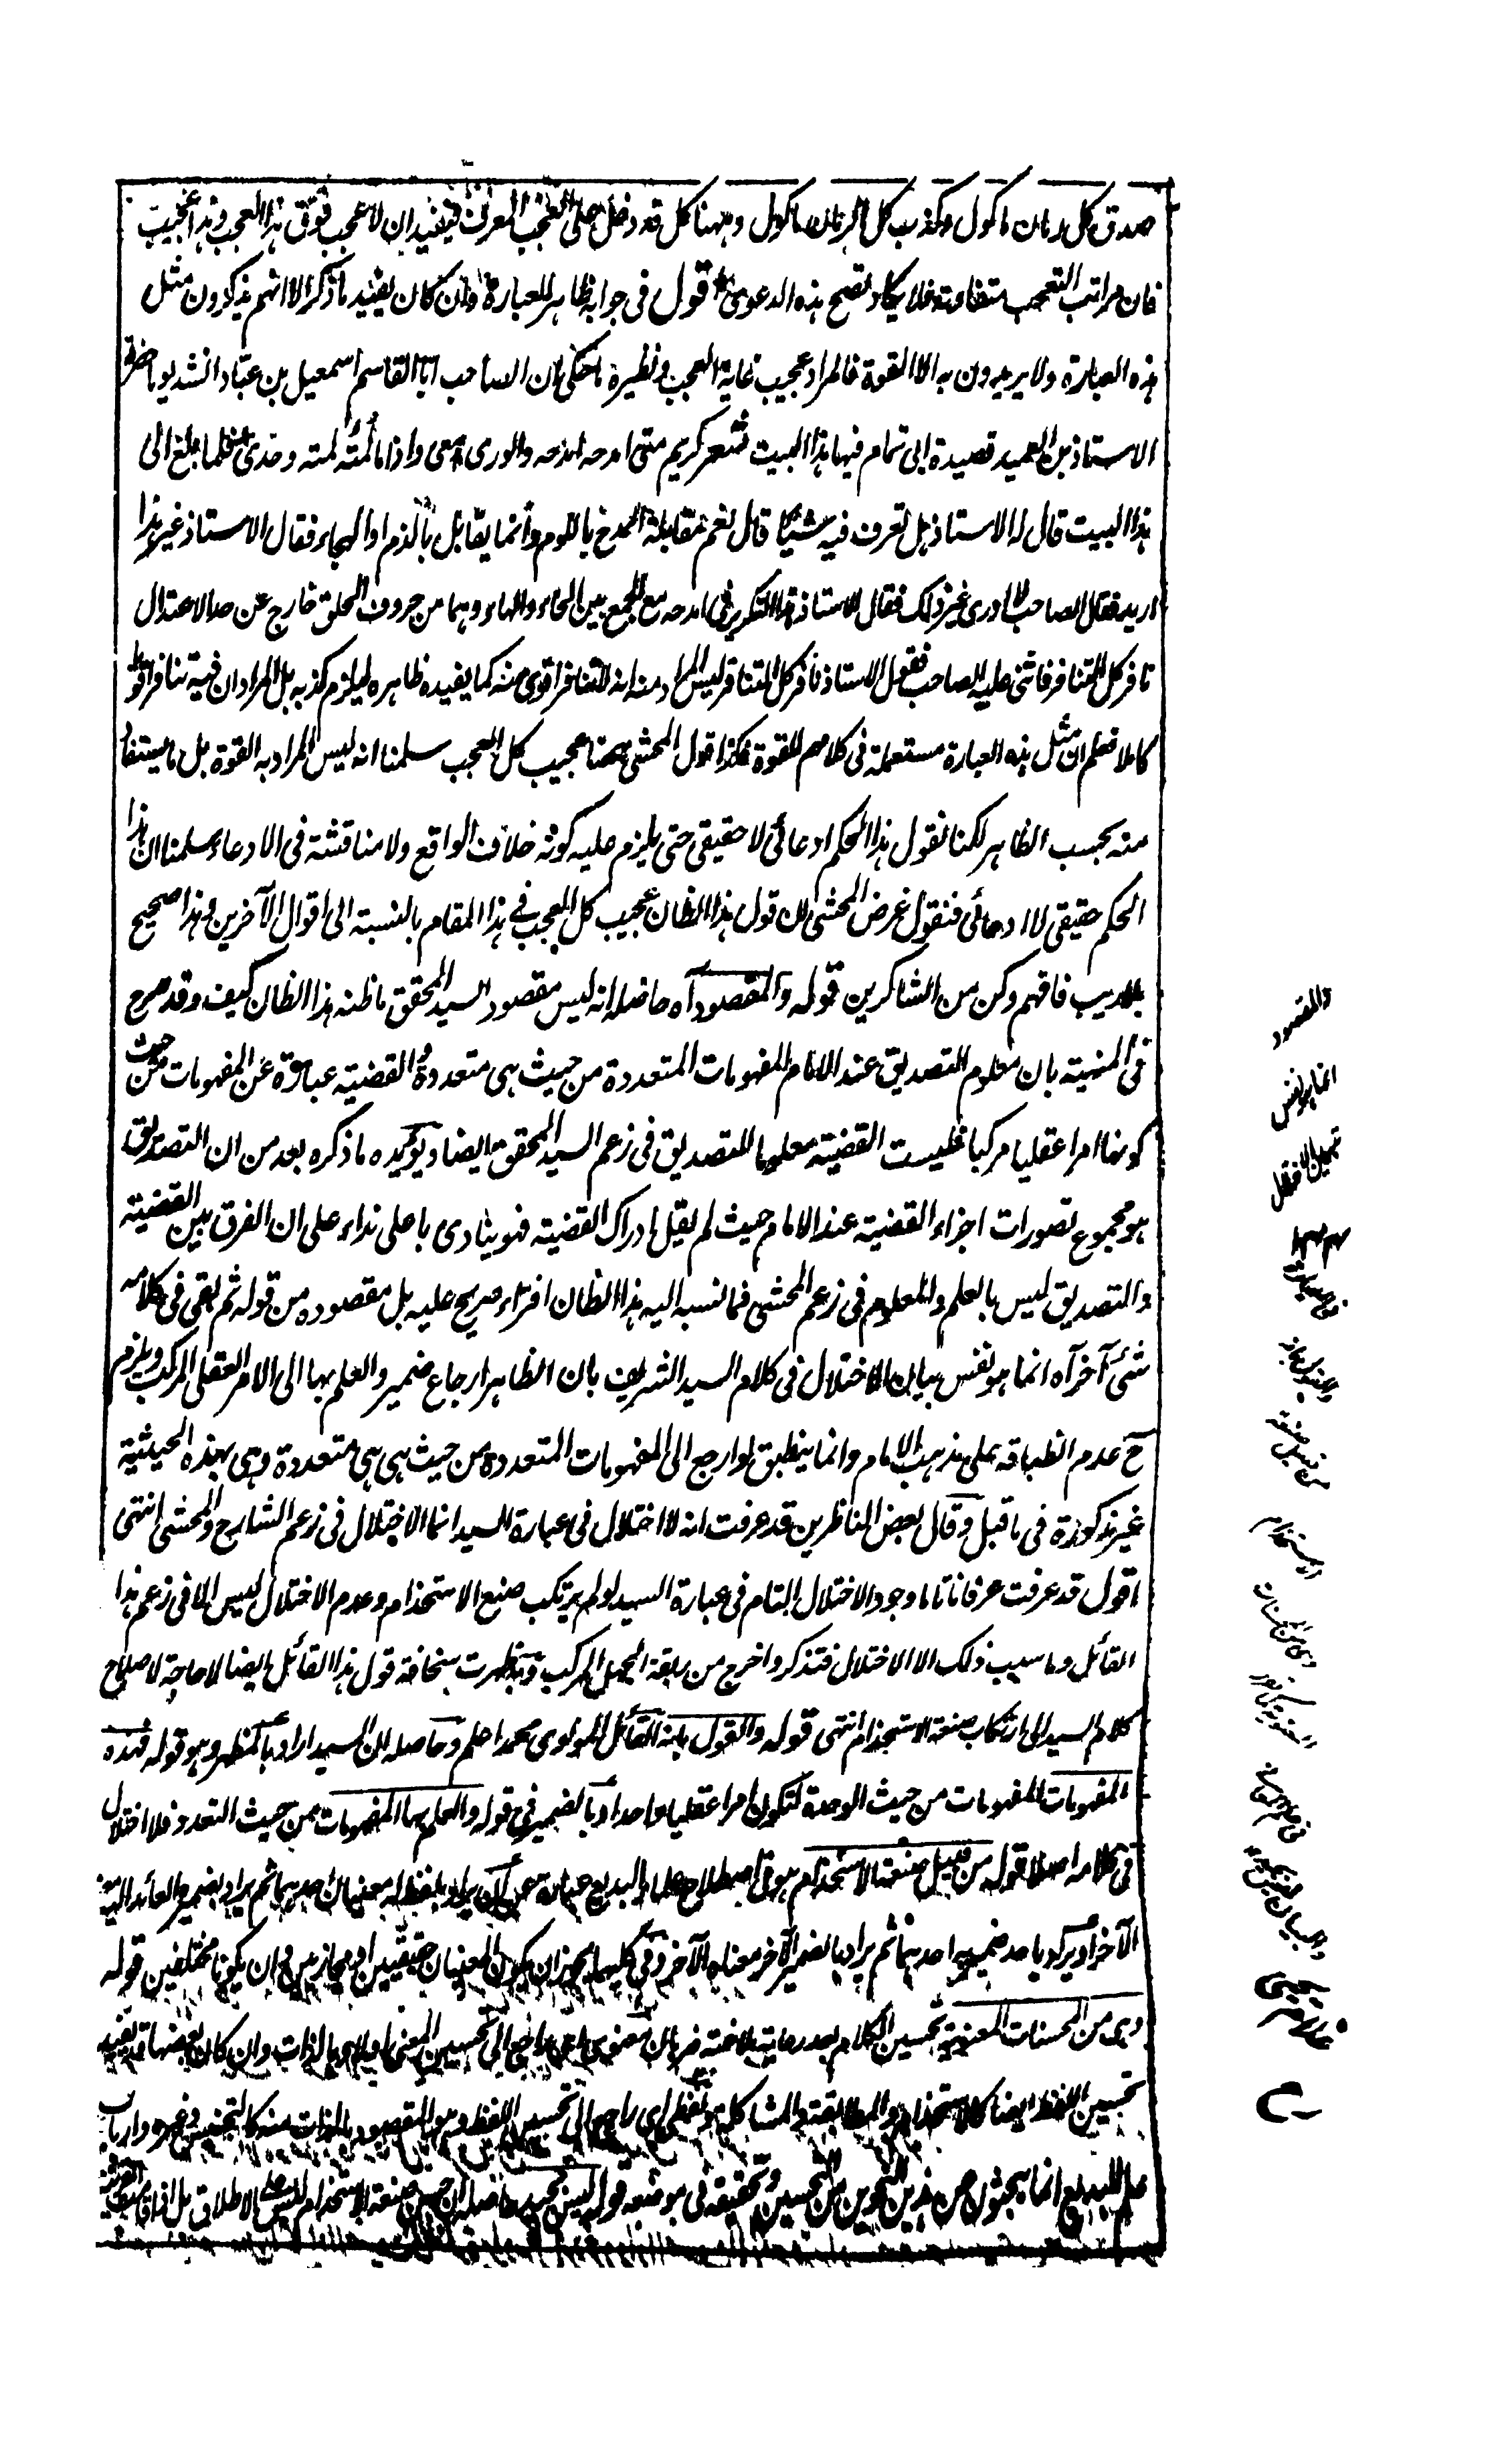 صدق كل رمان ماكول وكذب كل الرمان ماكول وههنا كل قد دخل على العجب المعرف فيفيد ان لا عجب فوق هذا العجب وهذا عجيب
فان مراتب التعجب متفاوتة فلا يكاد تصح هذه الدعوى اقول في جوابه ظاهر العبارة وان كان يفيد ما ذكر الا انهم يذكرون مثل
هذه العبارة ولا يريدون به الا القوة فالمراد عجيب غاية العجب ونظيره ما حكى ان الصاحب ابا القاسم اسمعيل بن عباد انشد يوما حضرة
الاستاذ بن العميد قصيدة ابي تمام فيها هذا البيت شعر كريم متى امدحه امدحه والورى معى واذا ما لمته لمته وحدى فلما بلغ الى
هذا البيت قال له الاستاذ هل تعرف فيه شيئا قال نعم مقابلة المدح باللوم وانما يقابل بالذم او الهجاء فقال الاستاذ غير هذا
اريد فقال الصاحب لا ادرى غير ذلك فقال الاستاذ هذا التكرير في امدحه مع الجمع بين الحاء والهاء وهما من حروف الحلق خارج عن حد الاعتدال
نافر كل التنافر فاثنى عليه الصاحب فقول الاستاذ نافر كل التنافر ليس المراد منه انه لا تنافر اقوى منه كما يفيده ظاهره ليلزم كذبه بل المراد ان فيه تنافرا قويا
كاملا فعلم ان مثل هذه العبارة مستعملة في كلامهم للقوة فكذا قول المحشى ههنا عجيب كل العجب سلمنا انه ليس المراد به القوة بل ما يستفاد
منه بحسب الظاهر لكنا نقول هذا الحكم ادعائى لا حقيقى حتى يلزم عليه كونه خلاف الواقع ولا مناقشة في الادعاء سلمنا ان هذا
الحكم حقيقى لا ادعائى فنقول غرض المحشى ان قول هذا الظان عجيب كل العجب في هذا المقام بالنسبة الى اقوال الآخرين وهذا صحيح
بلا ريب فافهم وكن من الشاكرين قوله والمقصود آه حاصله انه ليس مقصود السيد المحقق ما ظنه هذا الظان كيف وقد صرح
في المنهية بان معلوم التصديق عند الامام المفهومات المتعددة من حيث هى متعددة والقضية عبارة عن المفهومات من حيث
كونها امرا عقليا مركبا فليست القضية معلوما للتصديق في زعم السيد المحقق ايضا ويؤيده ما ذكره بعد من ان التصديق
هو مجموع تصورات اجزاء القضية عند الامام حيث لم يقل ادراك القضية فهو ينادى باعلى نداء على ان الفرق بين القضية
والتصديق ليس بالعلم والمعلوم في زعم المحشى فما نسبه اليه هذا الظان افتراء صريح عليه بل مقصوده من قوله ثم بقى في كلامه
شئ آخر آه انما هو نفس بيان الاختلال في كلام السيد الشريف بان الظاهر ارجاع ضمير والعلم بها الى الامر العقلى المركب ويلزم
ح عدم انطباقه على مذهب الامام وانما ينطبق لو ارجع الى المفهومات المتعددة من حيث هى هى متعددة وهى بهذه الحيثية
غير مذكورة في ما قبل وقال بعض الناظرين قد عرفت انه لا اختلال في عبارة السيد انما الاختلال في زعم الشارح والمحشى انتهى
اقول قد عرفت عرفانا تاما وجود الاختلال التام في عبارة السيد لو لم يرتكب صنع الاستخدام وعدم الاختلال ليس الا في زعم هذا
القائل وما سبب ذلك الا الاختلال فتذكر واخرج من ربقة الجهل المركب وبه ظهرت سخافة قول هذا القائل ايضا لا حاجة لاصلاح
كلام السيد الى ارتكاب صنعة الاستخدام انتهى قوله والقول بانه القائل المولوى محمد اعلم وحاصله ان السيد اراد بالمظهر وهو قوله فهذه
المفهومات المفهومات من حيث الوحدة لتكون امرا عقليا واحدا وبالضمير في قوله والعلم بها المفهومات من حيث التعدد فلا اختلال
في كلامه اصلا قوله من قبيل صنعة الاستخدام هو في اصطلاح علماء البديع عبارة عن ان يراد بلفظ له معنيان احدهما ثم يراد بضميره العائد اليه
الآخر او يراد باحد ضميريه احدهما ثم يراد بالضمير الآخر معناه الآخر وفي كليهما يجوز ان يكون المعنيان حقيقيين او مجازيين وان يكونا مختلفين قوله
وهى من المحسنات المعنوية تحسين الكلام بعد رعاية بلاغته ضربان معنوى اى راجع الى تحسين المعنى اولا وبالذات وان كان بعضها قد يفيد
تحسين اللفظ ايضا كالاستخدام والمطابقة والمشاكلة ولفظى اى راجع الى تحسين اللفظ وهو المقصود بالذات منه كالتجنيس وغيره وارباب
علم البديع انما يبحثون عن هذين النحوين من التحسين وتحقيقه في موضعه قوله ليس بجيد حاصله ان حسن صنعة الاستخدام ليس على الاطلاق بل اذا
والمقصود
انما هو نفس
من قبيل صنعة
الاستخدام
وهى من المحسنات